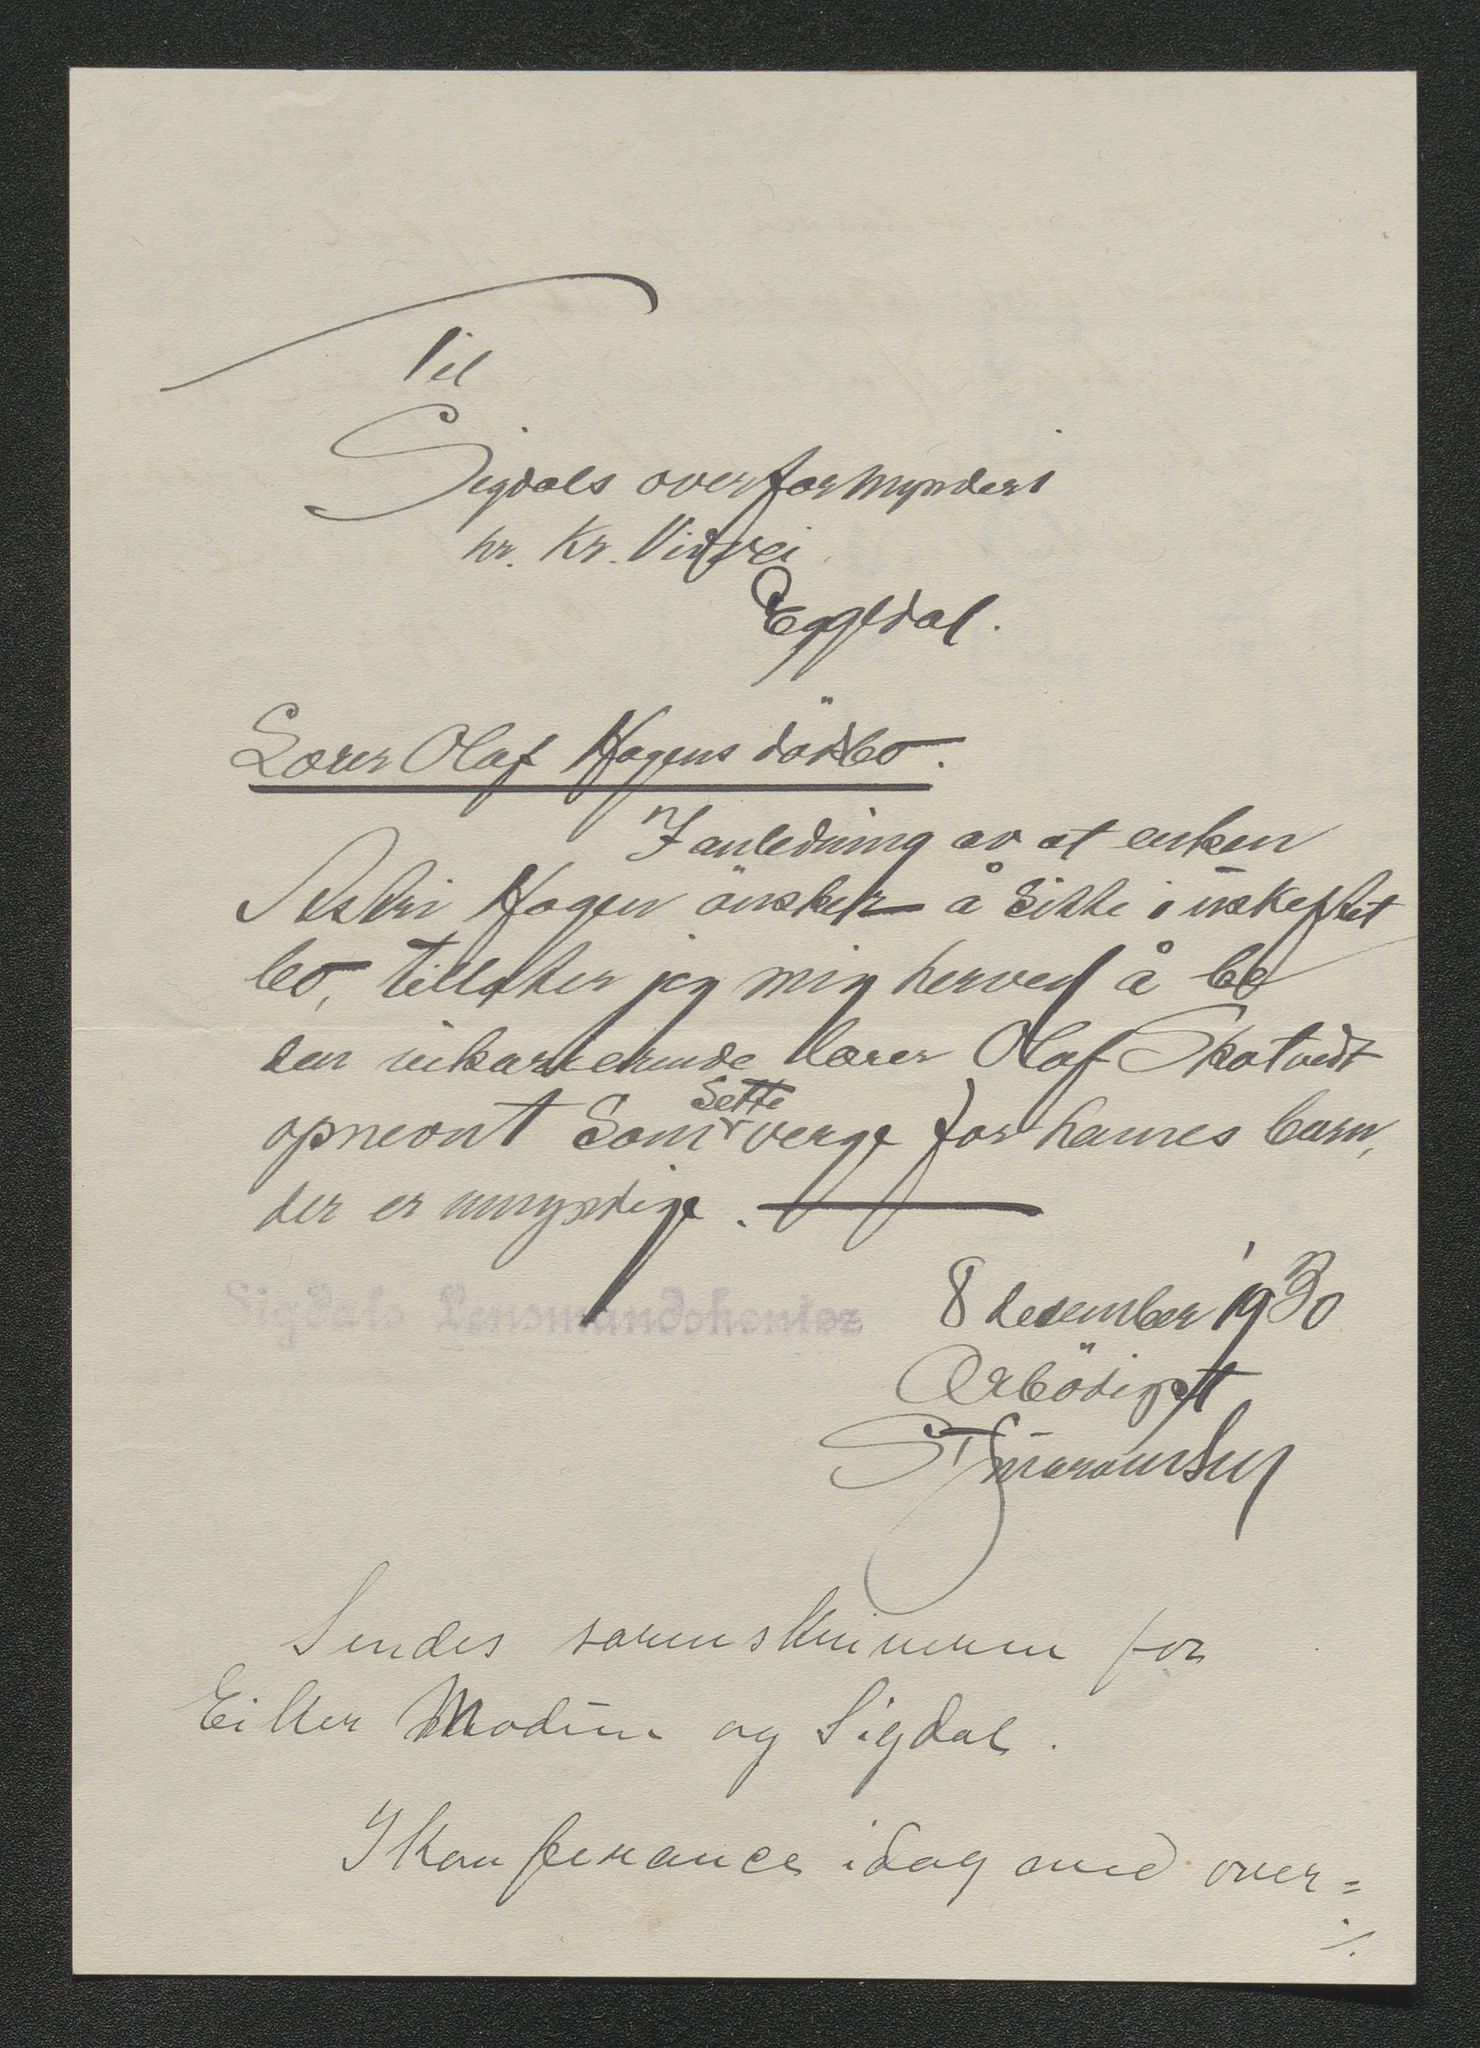 Til
Sigdals overformynderi
hr. Kr. Vidvei
Eggedal.
Lærer Olaf Hagens dödsbo.
I anledning av at enken
Hagen önsker å sitte i uskiftet
bo, tillater jeg mig herved å be
den vikarierende lærer Olaf Skatvedt
opnevnt som sette verge for hennes barn,
der er umyndige.
Sigdals Lensmandskontor
8 desember 1930
Ærbödigst
Sendes sorenskriveren for
Eiker Modum og Sigdal.
I konferance idag med over=
./.